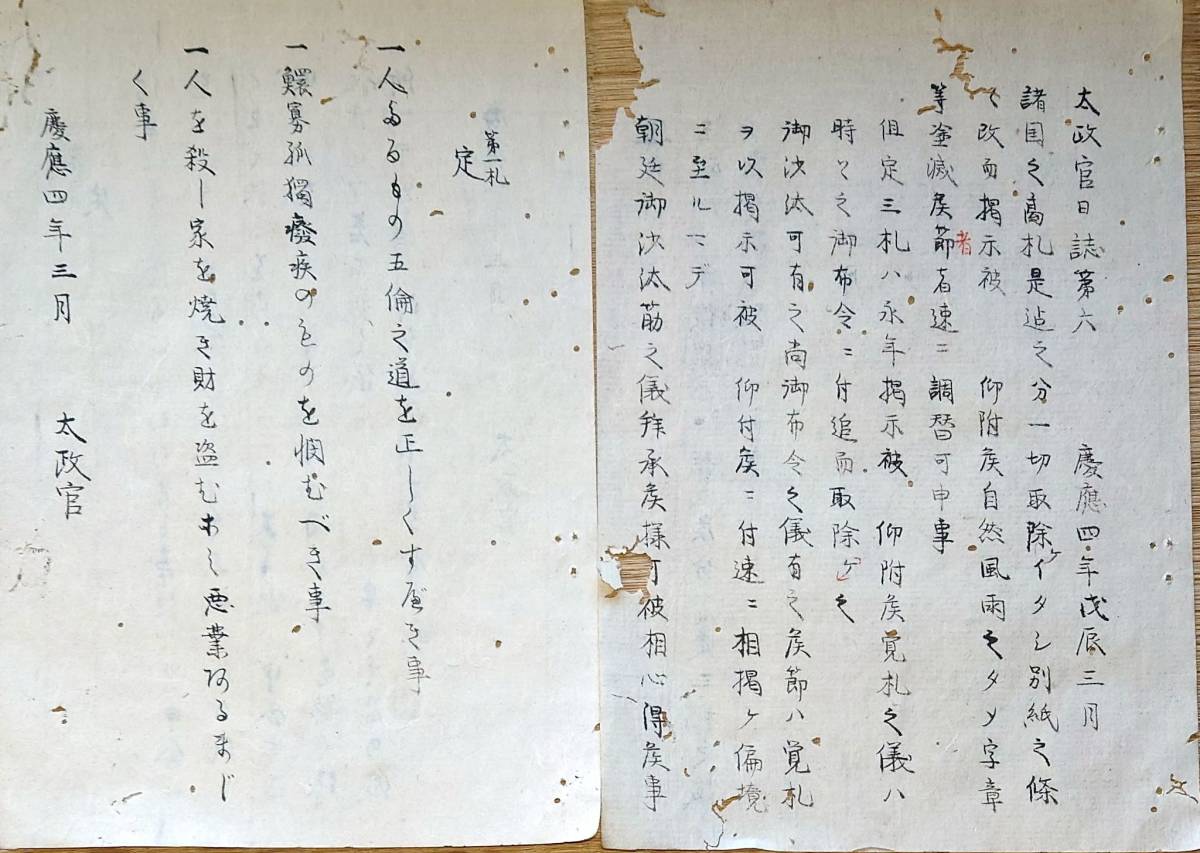 太政官日誌第六 慶應四年戊辰三月
諸国之高札是迠之分一切取除ケイタシ別紙之條
々改而掲示被 仰附矦自然風雨之タメ字章
等塗滅矦節者速ニ調替可申事
者
但定三札ハ永年掲示被 仰附矦覚札之儀ハ
時々之御布令ニ付追而取除ケ之
御沙汰可有之尚御布令之儀有之矦節ハ覚札
ヲ以掲示可被 仰付矦ニ付速ニ相掲ケ偏境
ニ至ルマデ
朝廷御沙汰筋之儀拜承矦様可被相心得矦事
第一札
定
一人たるもの五倫之道を正しくすべき事
一鰥寡孤獨癈疾のものを憫むべき事
一人を殺し家を焼き財を盗む等之悪業あるまじ
く事
慶應四年三月 太政官